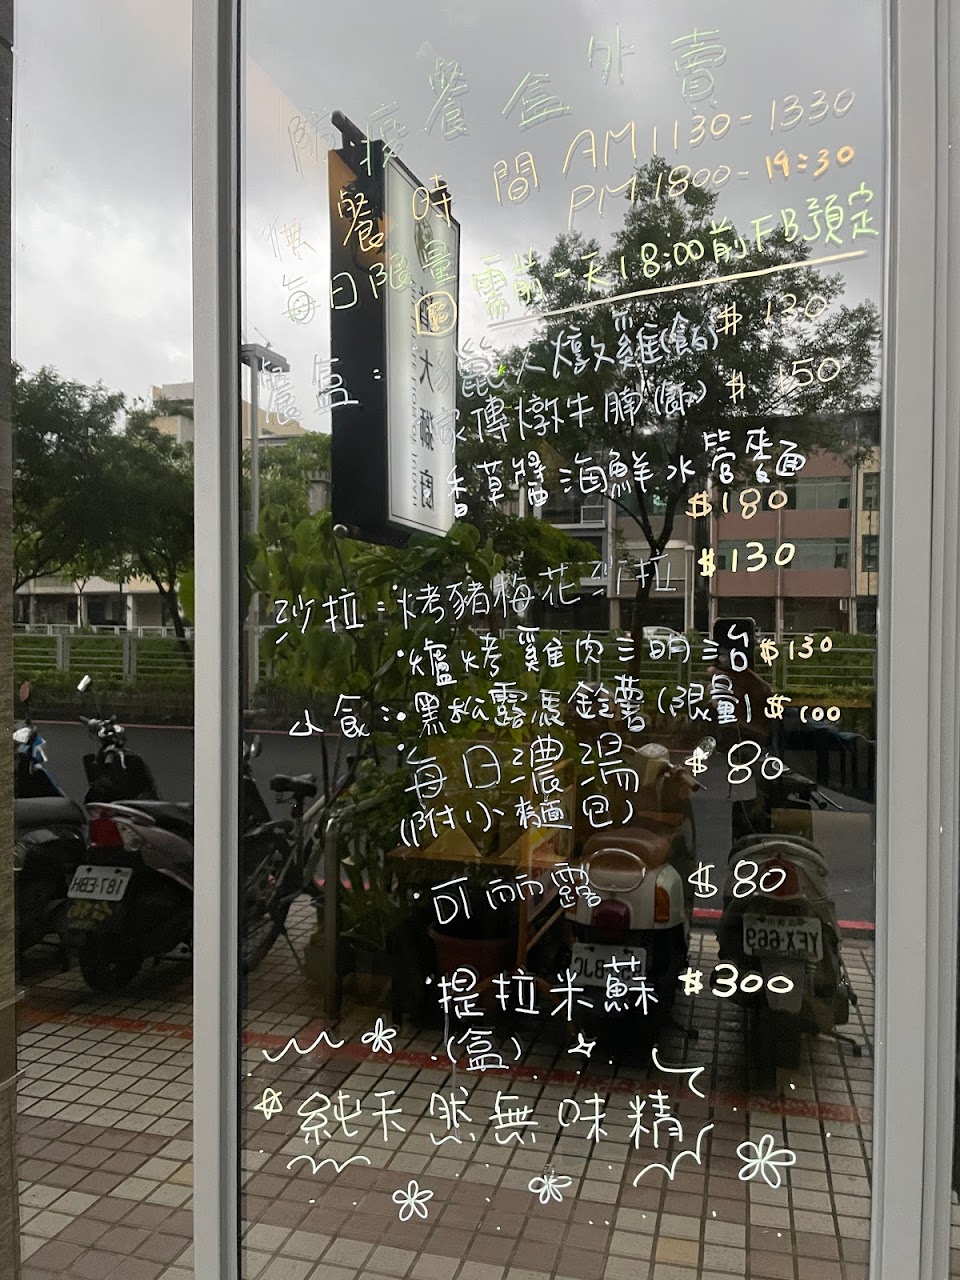 防疫餐盒外賣
供餐時間 AM 1130-1330
PM 1800-19:30
每日限量 需前一天18:00前FB預定
餐盒：獵人燉雞(飯) $130
家傳燉牛腩(飯) $150
香草醬海鮮水管麵
$180
沙拉：·烤豬梅花沙拉 $130
·爐烤雞肉三明治 $130
小食：·黑松露馬鈴薯(限量) $100
·每日濃湯 $80
(附小麵包)
·可麗露 $80
·提拉米蘇 $300
(盒)
純天然無味精
187-EBH
YEX-669